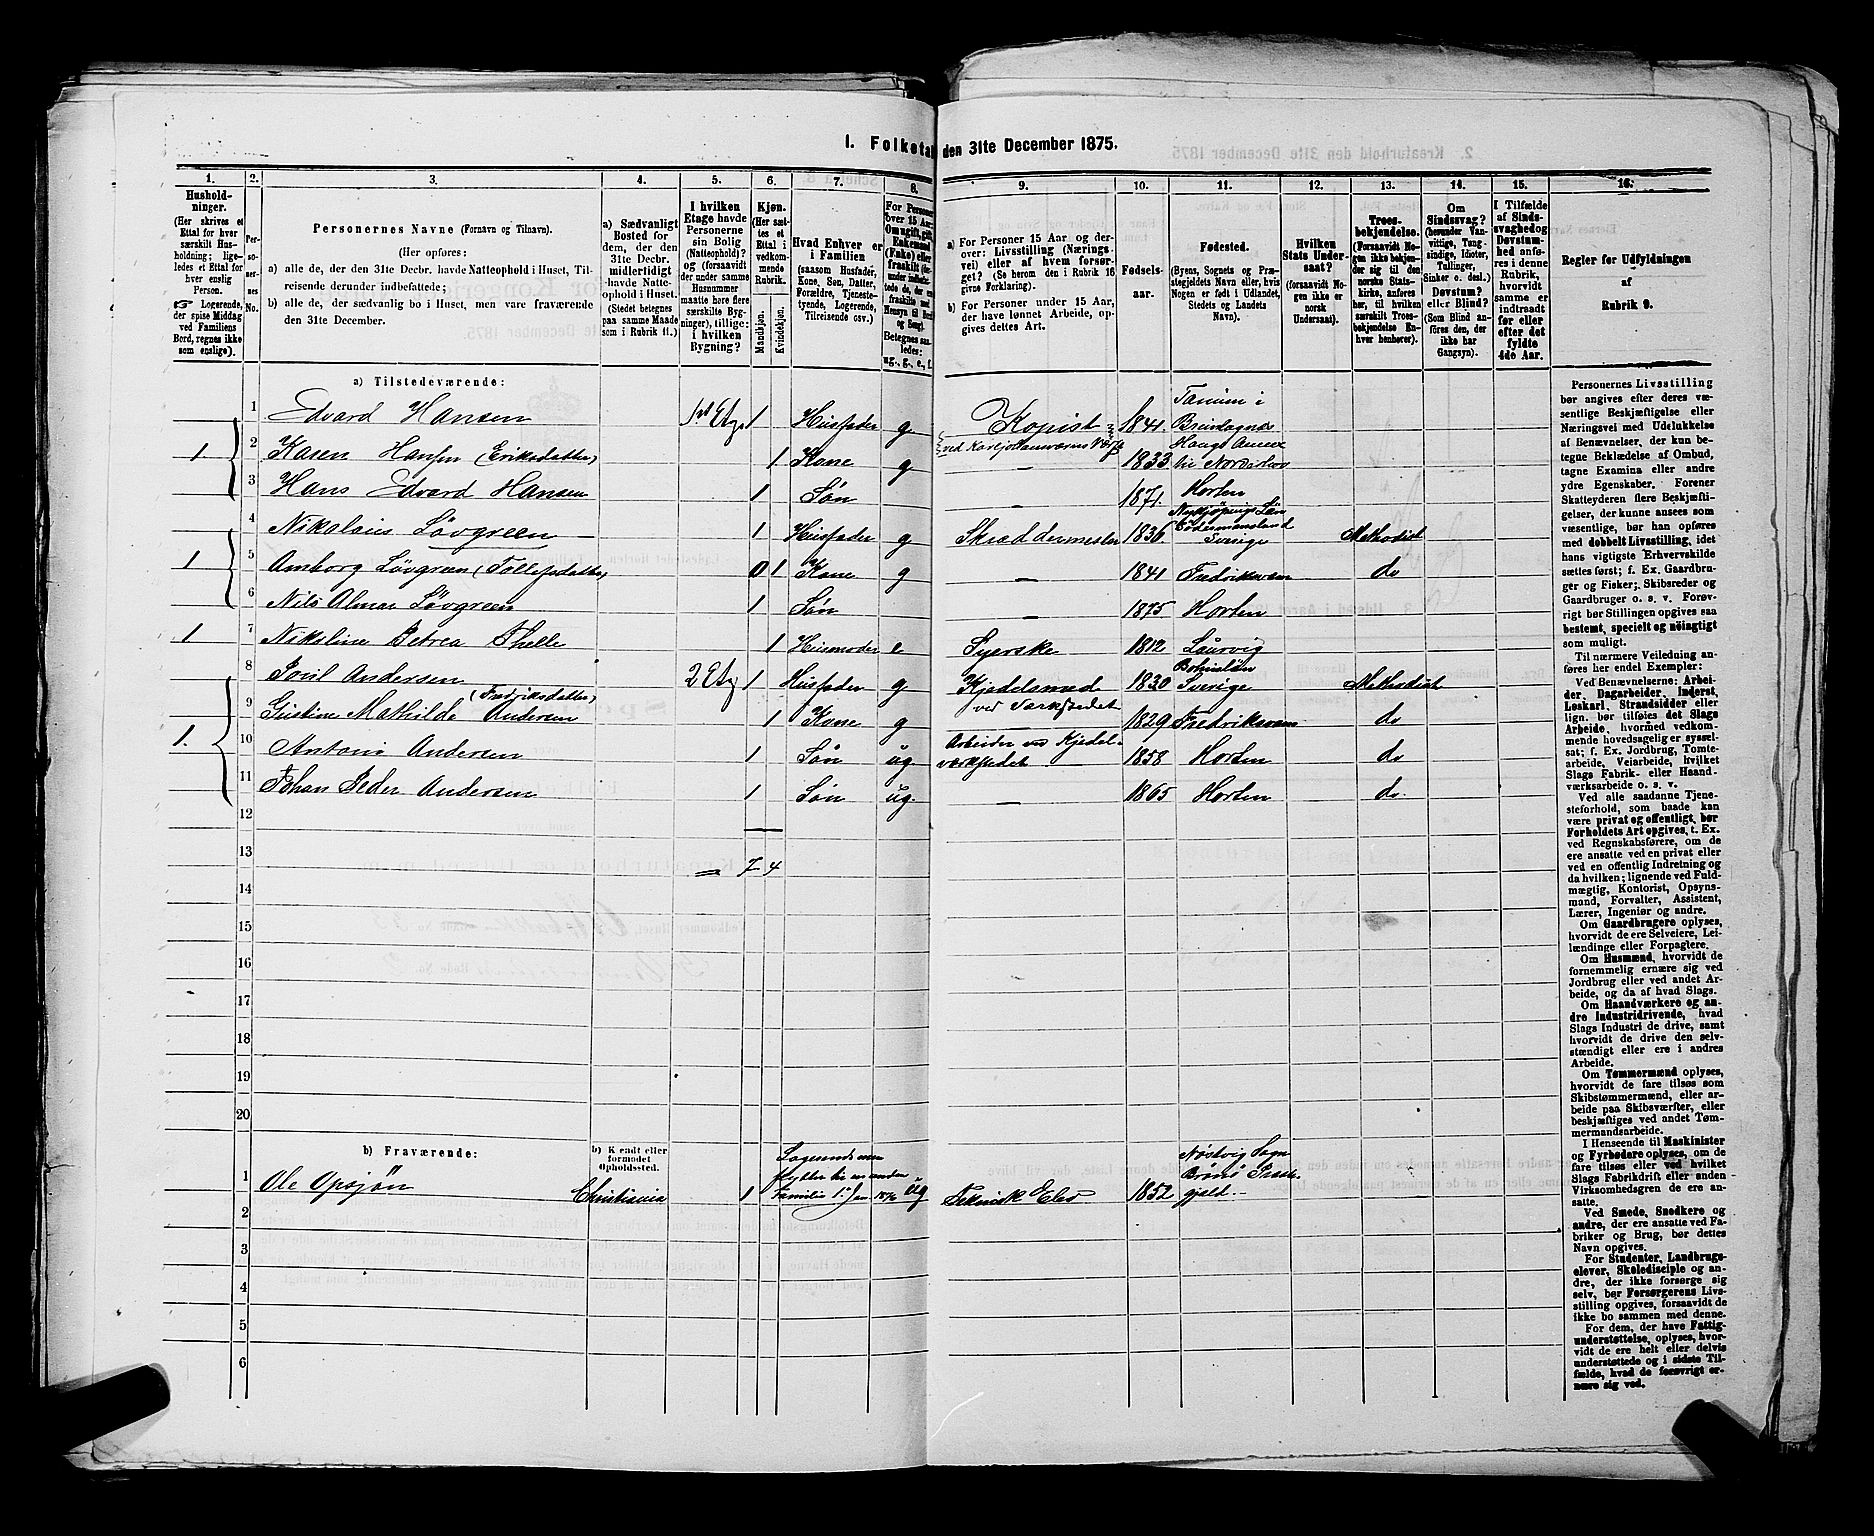 1. Folketal den 31te December 1875.
1. 2. 3. 4. 5. 6. 7. 8. 9. 10. 11. 12. 13. 14. 15. 16.
Hushold-
ninger.
(Her skrives et
Ettal for hver
særskilt Hus-
holdning; lige-
ledes et Ettal for
hver enslig
Person.
☞ Logerende,
der spise Middag
ved Familiens
Bord, regnes ikke
som enslige).
Per-
so-
ner-
nes
No.
Personernes Navne (Fornavn og Tilnavn).
(Her opføres:
a) alle de, der den 31te Decbr. havde Natteophold i Huset, Til-
reisende derunder indbefattede;
b) alle de, der sædvanlig bo i Huset, men vare fraværende
den 31te December.
a) Sædvanligt
Bosted for
dem, der den
31te Decbr.
midlertidigt
havde Natte-
ophold i Huset.
(Stedet betegnes
paa samme Maade
som i Rubrik 11.)
I hvilken
Etage havde
Personerne
sin Bolig
(Natteophold)?
og (forsaavidt
der under samme
Husnummer
maatte høre flere
særskilte Byg-
ninger), tillige:
i hvilken
Bygning?
Kjøn.
(Her sæt-
tes et
Ettal i
vedkom-
mende
Rubrik.
Mandkjøn.
Kvindekjøn.
Hvad Enhver er
i Familien
(saasom Husfader,
Kone, Søn, Datter,
Forældre, Tjeneste-
tyende, Logerende,
Tilreisende osv.)
For Personer
over 15 Aar:
Om ugift, gift,
Enkemand
(Enke) eller
fraskilt
Betegnes saa-
ledes:
ug., g., e., f.
a) For Personer 15 Aar og der-
over: Livsstilling (Nærings-
vei) eller af hvem forsør-
get? (Se herom den i Rubrik 16
givne Forklaring).
b) For Personer under 15 Aar,
der have lønnet Arbeide, op-
gives dettes Art.
Fødsels-
aar.
Fødested.
(Byens, Sognets og Præ-
stegjeldets Navn eller, hvis
Nogen er født i Udlandet,
Stedets og Landets
Navn).
Hvilken
Stats Under-
saat?
(forsaavidt No-
gen ikke er
norsk
Undersaat).
Troes-
bekjendelse.
(Forsaavidt No-
gen ikke bekjen-
der sig til den
norske Stats-
kirke, anføres
her, til hvilken
særskilt Troes-
bekjendelse En-
hver henhører).
Om
Sindssvag?
(herunder Van-
vittige, Tung-
sindige, Idioter,
Tullinger,
Sinker o. desl.)
Døvstum?
eller Blind?
(Som Blind an-
føres den, der
ikke har
Gangsyn).
I Tilfælde
af Sinds-
svaghed og
Døvstum-
hed anfø-
res i denne
Rubrik,
hvorvidt
samme er
indtraadt
før eller
efter det
fyldte
4de Aar.
Regler for Udfyldningen
af
Rubrik 9.
a) Tilstedeværende:
1 Edvard Hansen 1st Etg. 1 Husfader g Kopist ved Karljohansværns Værft 1841. Tanum i Brunlagnæs
1. 2 Karen Hansen (Eriksdatter) 1 Kone g — 1833 Haugs Annex til
3 Hans Edvard Hansen 1 Søn — 1871. Horten
4 Nikolaus Lövgreen 1 Husfader g Skræddermester 1836 Nykjøpings Län Södermanland Sverige Methodist
1 5 Amborg Lövgreen (Tollefsdatter) 0 1 Kone g — 1841 Fredriksværn do
6 Nils Almar Lövgreen 1 Søn — 1875 Horten
1 7 Nikoline Petrea Thelle 1 Husmoder e Syerske 1812 Laurvig
8 Povil Andersen 2 Etg 1 Husfader g Kjedelsmed ved Værkstedet 1830 Bohuslän Sverige Methodist
9 Gustine Mathilde (Fredriksdatter) Andersen 1 Kone g 1829 Fredriksværn do
1. 10 Anton Andersen 1 Søn ug Arbeider ved Kjedelværkstedet 1858 Horten do
11 Johan Peder Andersen 1 Søn ug. — 1865 Horten do.
12
13 7 4
14
15
16
17
18
19
20
b) Fraværende:
b) Kjendt eller
formodet
Opholdssted.
1 Ole Opsjøn Christiania 1 Logerende men flytter til en anden Familie 1ste Jan 1876 ug Teknisk Elev 1852 Sogn Brønø Præstegjeld
2
3
4
5
6
Personernes Livsstilling
bør angives efter deres væ-
sentlige Beskjæftigelse eller
Næringsvei med Udelukkelse
af Benævnelser, der kun be-
tegne Beklædelse af Ombud,
tagne Examina eller andre
ydre Egenskaber. Forener
Skatteyderen flere Beskjæfti-
gelser, der kunne ansees som
væsentlige, bør han opføres
med dobbelt Livsstilling, idet
hans vigtigste Erhvervskilde
sættes først; f. Ex. Gaardbru-
ger og Fisker; Skibsreder og
Gaardbruger o. s. v. Forøv-
rigt bør Stillingen opgives saa
bestemt, specielt og nöiagtigt
som muligt.
Til nærmere Veiledning an-
føres her endel Exempler:
Ved Benævnelserne: Arbei-
der, Dagarbeider, Inderst,
Løskarl, Strandsidder eller
lign. bør tilføies det Slags
Arbeide, hvormed vedkom-
mende hovedsagelig er syssel-
sat; f. Ex. Jordbrug, Tomte-
arbeide, Veiarbeide, hvilket
Slags Fabrik- eller Haand-
værksarbeide o. s. v.
Ved alle saadanne Tjene-
steforhold, som baade kan
være privat og offentligt, bør
Forholdets Art opgives, t. Ex.
ved Regnskabsførere, om de
ere ansatte ved en privat eller
ved en offentlig Indretning og
da hvilken; lignende ved Fuld-
mægtig, Kontorist, Opsyns-
mand, Forvalter, Assistent,
Lærer, Ingeniør og andre.
Om Gaardbrugere oplyses,
hvorvidt de ere Selveiere, Lei-
lændinge eller Forpagtere.
Om Husmænd, hvorvidt de
fornemmelig ernære sig ved
Jordbrug eller ved andet Ar-
beide, og da af hvad Slags.
Om Haandværkere og an-
dre Industridrivende, hvad
Slags Industri de drive, samt
hvorvidt de drive den selv-
stændigt eller ere i andres
Arbeide.
Om Tømmermænd oplyses,
hvorvidt de fare tilsøs som
Skibstømmermænd, eller ar-
beide paa Skibsværfter, eller
beskjæftiges ved andet Tøm-
mermandsarbeide.
I Henseende til Maskinister
og Fyrbødere oplyses, om de
fare tilsøs eller ved hvilket
Slags Fabrikdrift eller anden
Virksomhedsgren de ere an-
satte.
Ved Smede, Snedkere og
andre, der ere ansatte ved Fa-
briker og Brug, bør dettes
Navn opgives.
For Studenter, Landbrugs-
elever, Skoledisciple og an-
dre, der ikke forsørge sig
selv, bør Forsørgerens Livs-
stilling opgives, forsaavidt de
ikke bo sammen med denne.
For dem, der have Fattig-
understøttelse, oplyses, hvor-
vidt de ere helt eller delvis
understøttede og i sidste Til-
fælde, hvad de forøvrigt er-
nære sig ved.